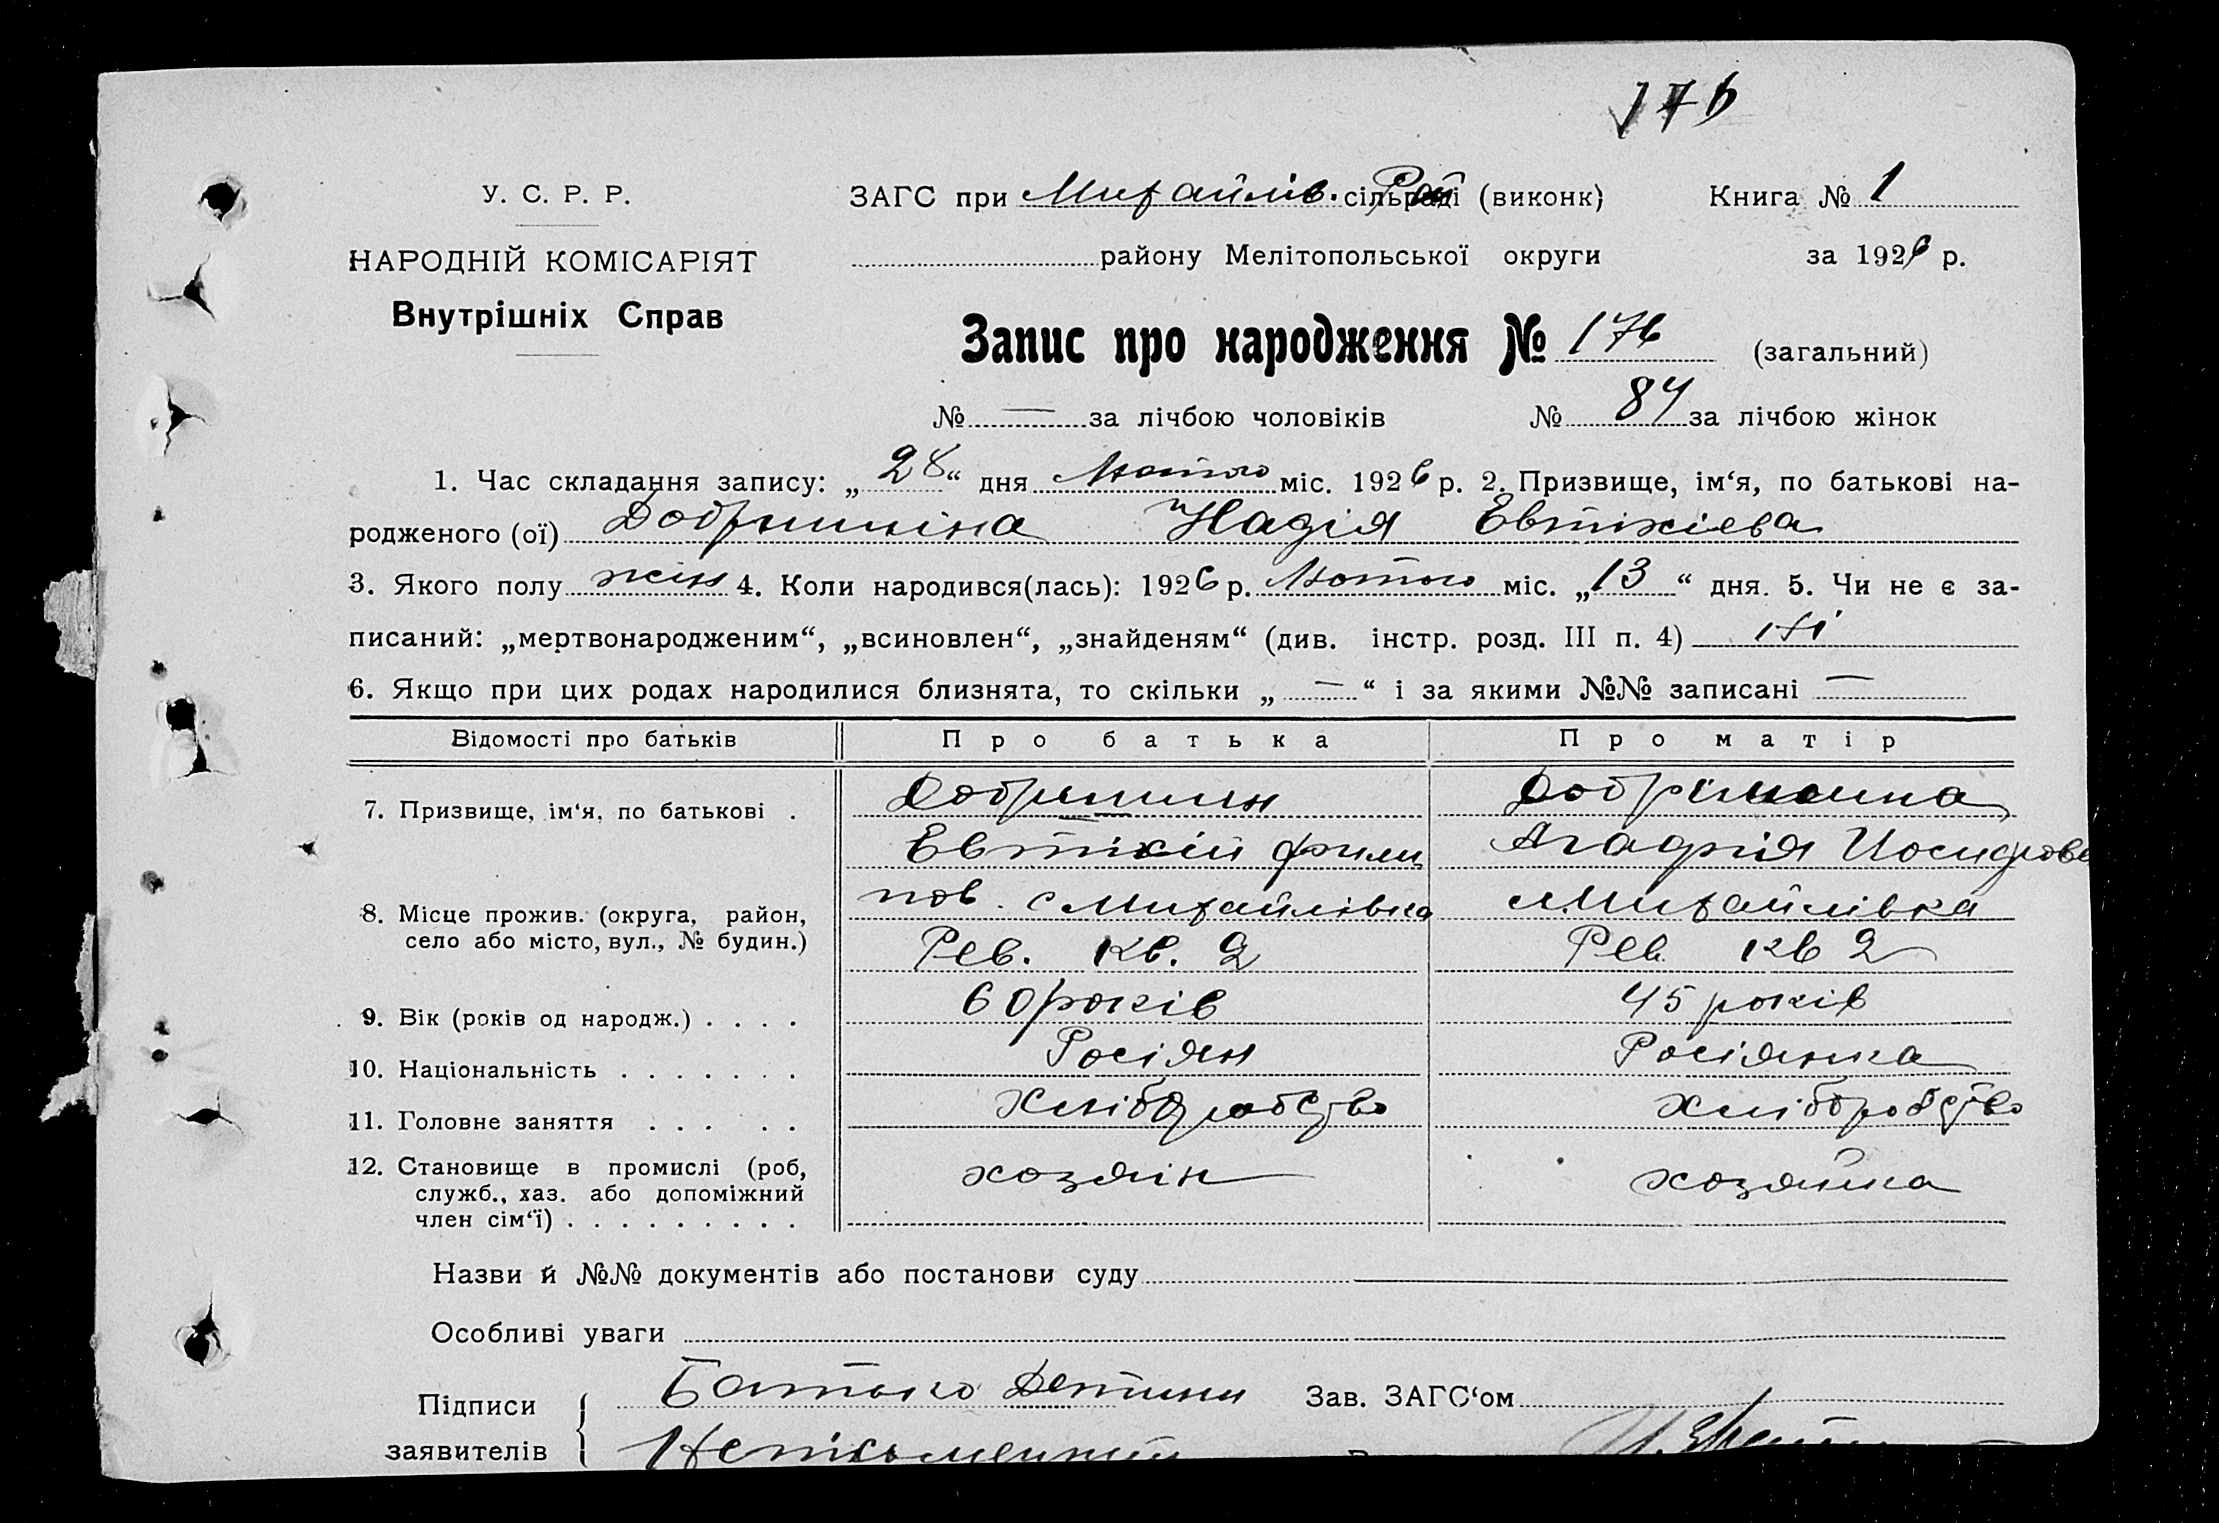 176
У. С. Р. Р.
НАРОДНІЙ КОМІСАРІЯТ
Внутрішніх Справ
ЗАГС при Михайлів. сільраді (виконк) Книга № 1
району Мелітопольської округи за 1926 р.
Запис про народження № 176 (загальний)
№ — за лічбою чоловіків № 84 за лічбою жінок
1. Час складання запису: „28“ дня Лютого міс. 1926 р. 2. Призвище, ім‘я, по батькові на-
родженого (ої) Добришина Надія Евтіхієва
3. Якого полу жін 4. Коли народився(лась): 1926 р. Лютого міс. „13“ дня. 5. Чи не є за-
писаний: „мертвонародженим“, „всиновлен“, „знайденям“ (див. інстр. розд. III п. 4) ні
6. Якщо при цих родах народилися близнята, то скільки „ — “ і за якими №№ записані —
Відомості про батьків Про батька Про матір
7. Призвище, ім‘я, по батькові . Добришин Добришина
Евтіхій Филип Агафія Иосифова
8. Місце прожив. (округа, район, село або місто, вул., № будин.) пов. с Михайлівка с Михайлівка
Рев. кв. 2 Рев кв 2
9. Вік (років од народж.) . . . . 60 років 45 років
10. Національність . . . . . . . Росіян Росіянка
11. Головне заняття . . . . . Хліборобство хліборобство
12. Становище в промислі (роб, служб., хаз. або допоміжний член сім‘ї) . . . . . . . . . хозяін хозяйка
Назви й №№ документів або постанови суду
Особливі уваги
Підписи Батько Дитини Зав. ЗАГС‘ом
заявителів Неписьменний